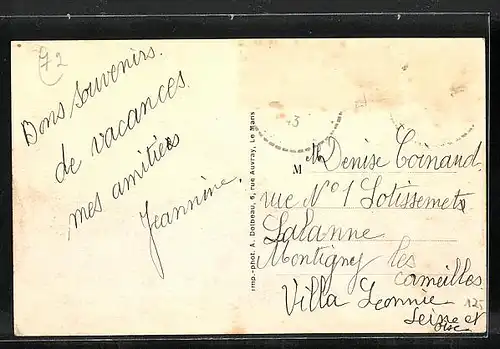 72
Bons souvenirs.
de vacances.
mes amitiés
Jeannine.
Imp.-phot. A. Dolbeau, 6, rue Auvray, Le Mans
M Denise Coinaud
rue N°1 Lotissements
Lalanne
Montigny les
cameilles
Villa Leonnie
Seine et
Oise
125